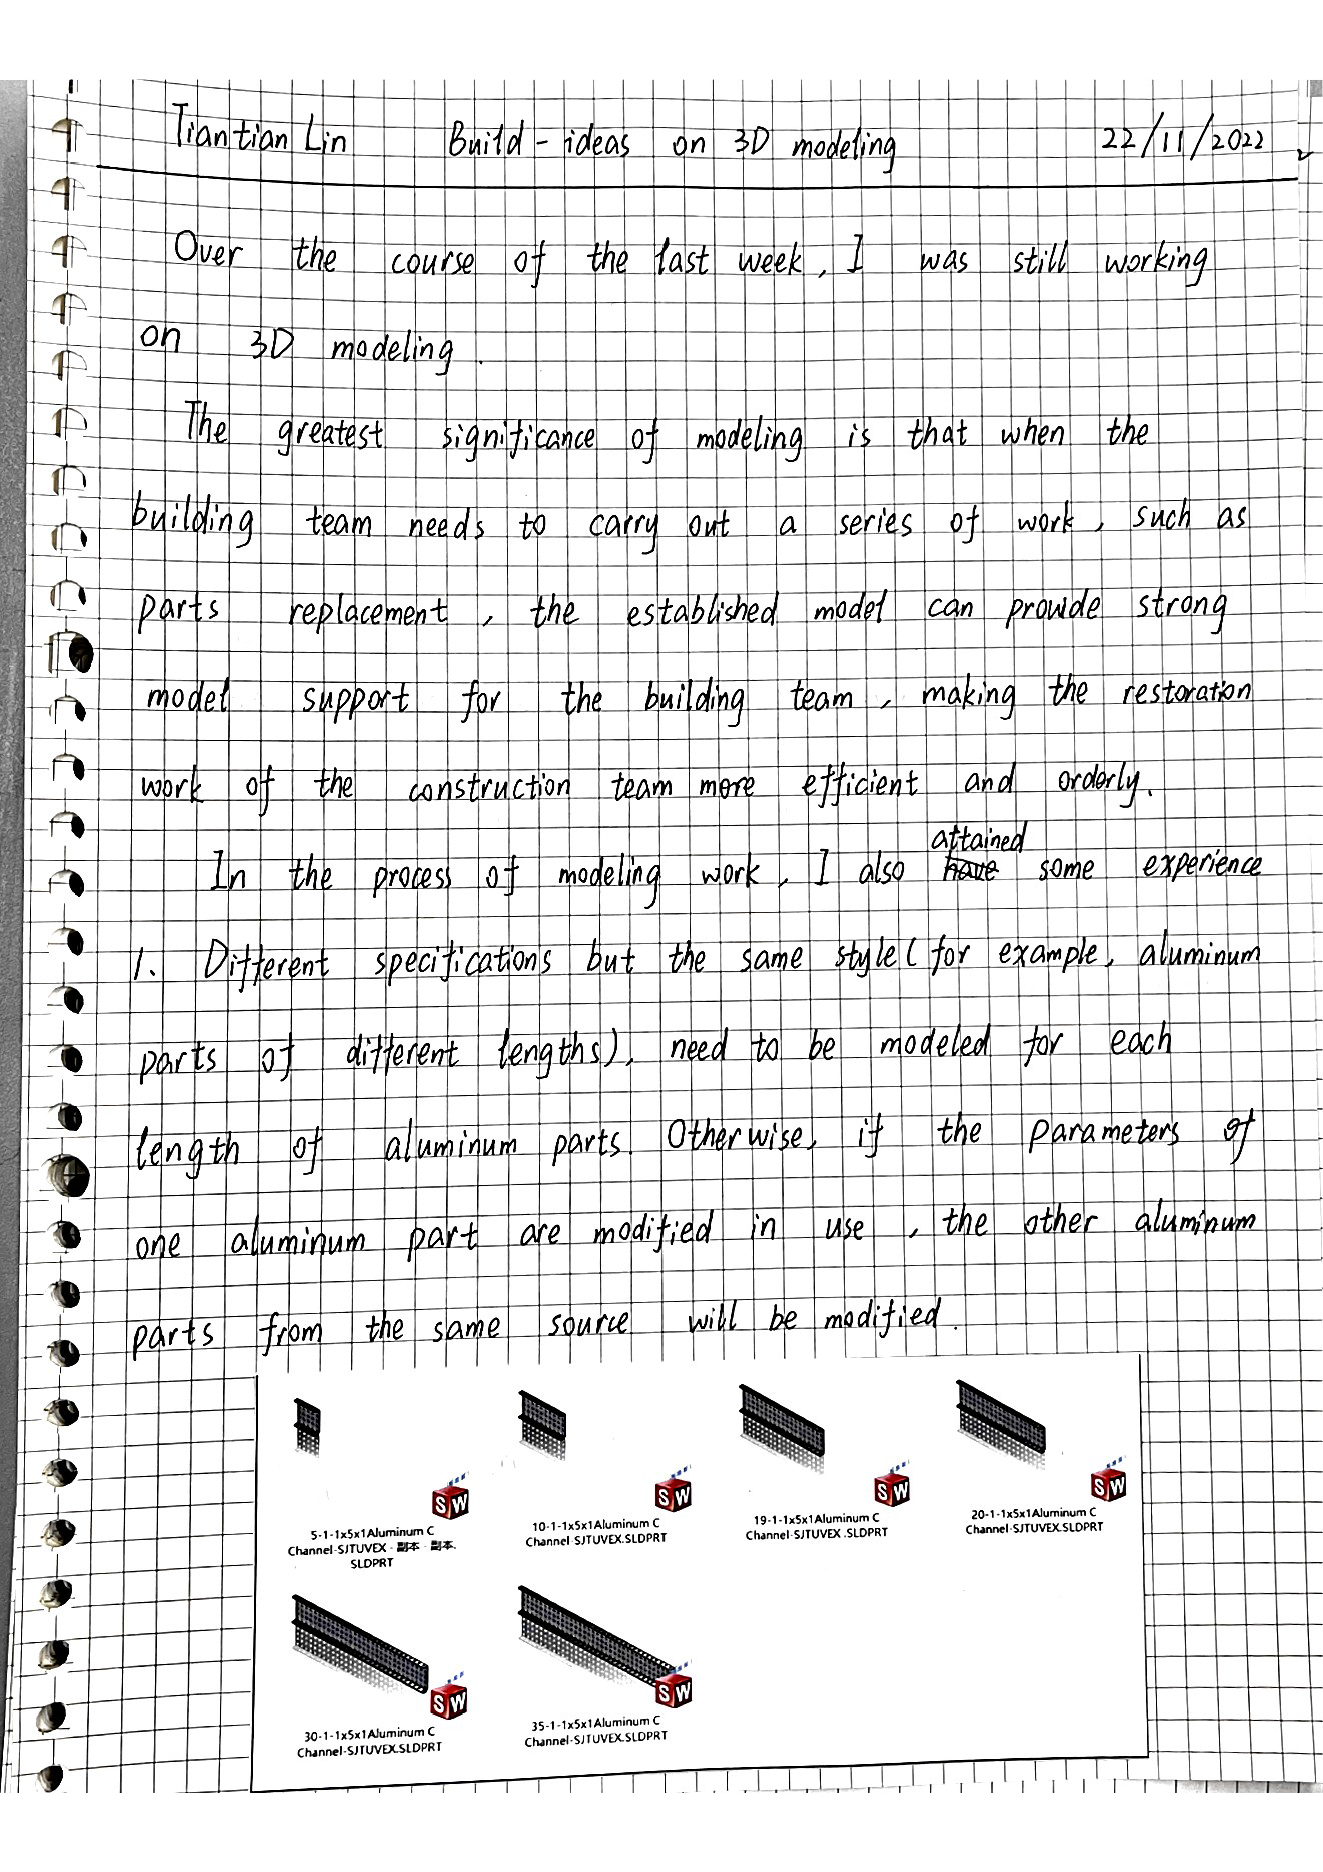 Tiantian Lin Build-ideas on 3D modeling 22/11/2022
Over the course of the last week, I was still working
on 3D modeling.
The greatest significance of modeling is that when the
building team needs to carry out a series of work, such as
parts replacement, the established model can provide strong
model support for the building team, making the restoration
work of the construction team more efficient and orderly.
attained
In the process of modeling work, I also have some experience
1. Different specifications but the same style (for example, aluminum
parts of different lengths), need to be modeled for each
length of aluminum parts. Otherwise, if the parameters of
one aluminum part are modified in use, the other aluminum
parts from the same source will be modified.
SW SW SW SW
5-1-1x5x1Aluminum C
Channel-SJTUVEX - 副本 - 副本.
SLDPRT
10-1-1x5x1Aluminum C
Channel-SJTUVEX.SLDPRT
19-1-1x5x1Aluminum C
Channel-SJTUVEX .SLDPRT
20-1-1x5x1Aluminum C
Channel-SJTUVEX.SLDPRT
SW SW
30-1-1x5x1Aluminum C
Channel-SJTUVEX.SLDPRT
35-1-1x5x1Aluminum C
Channel-SJTUVEX.SLDPRT